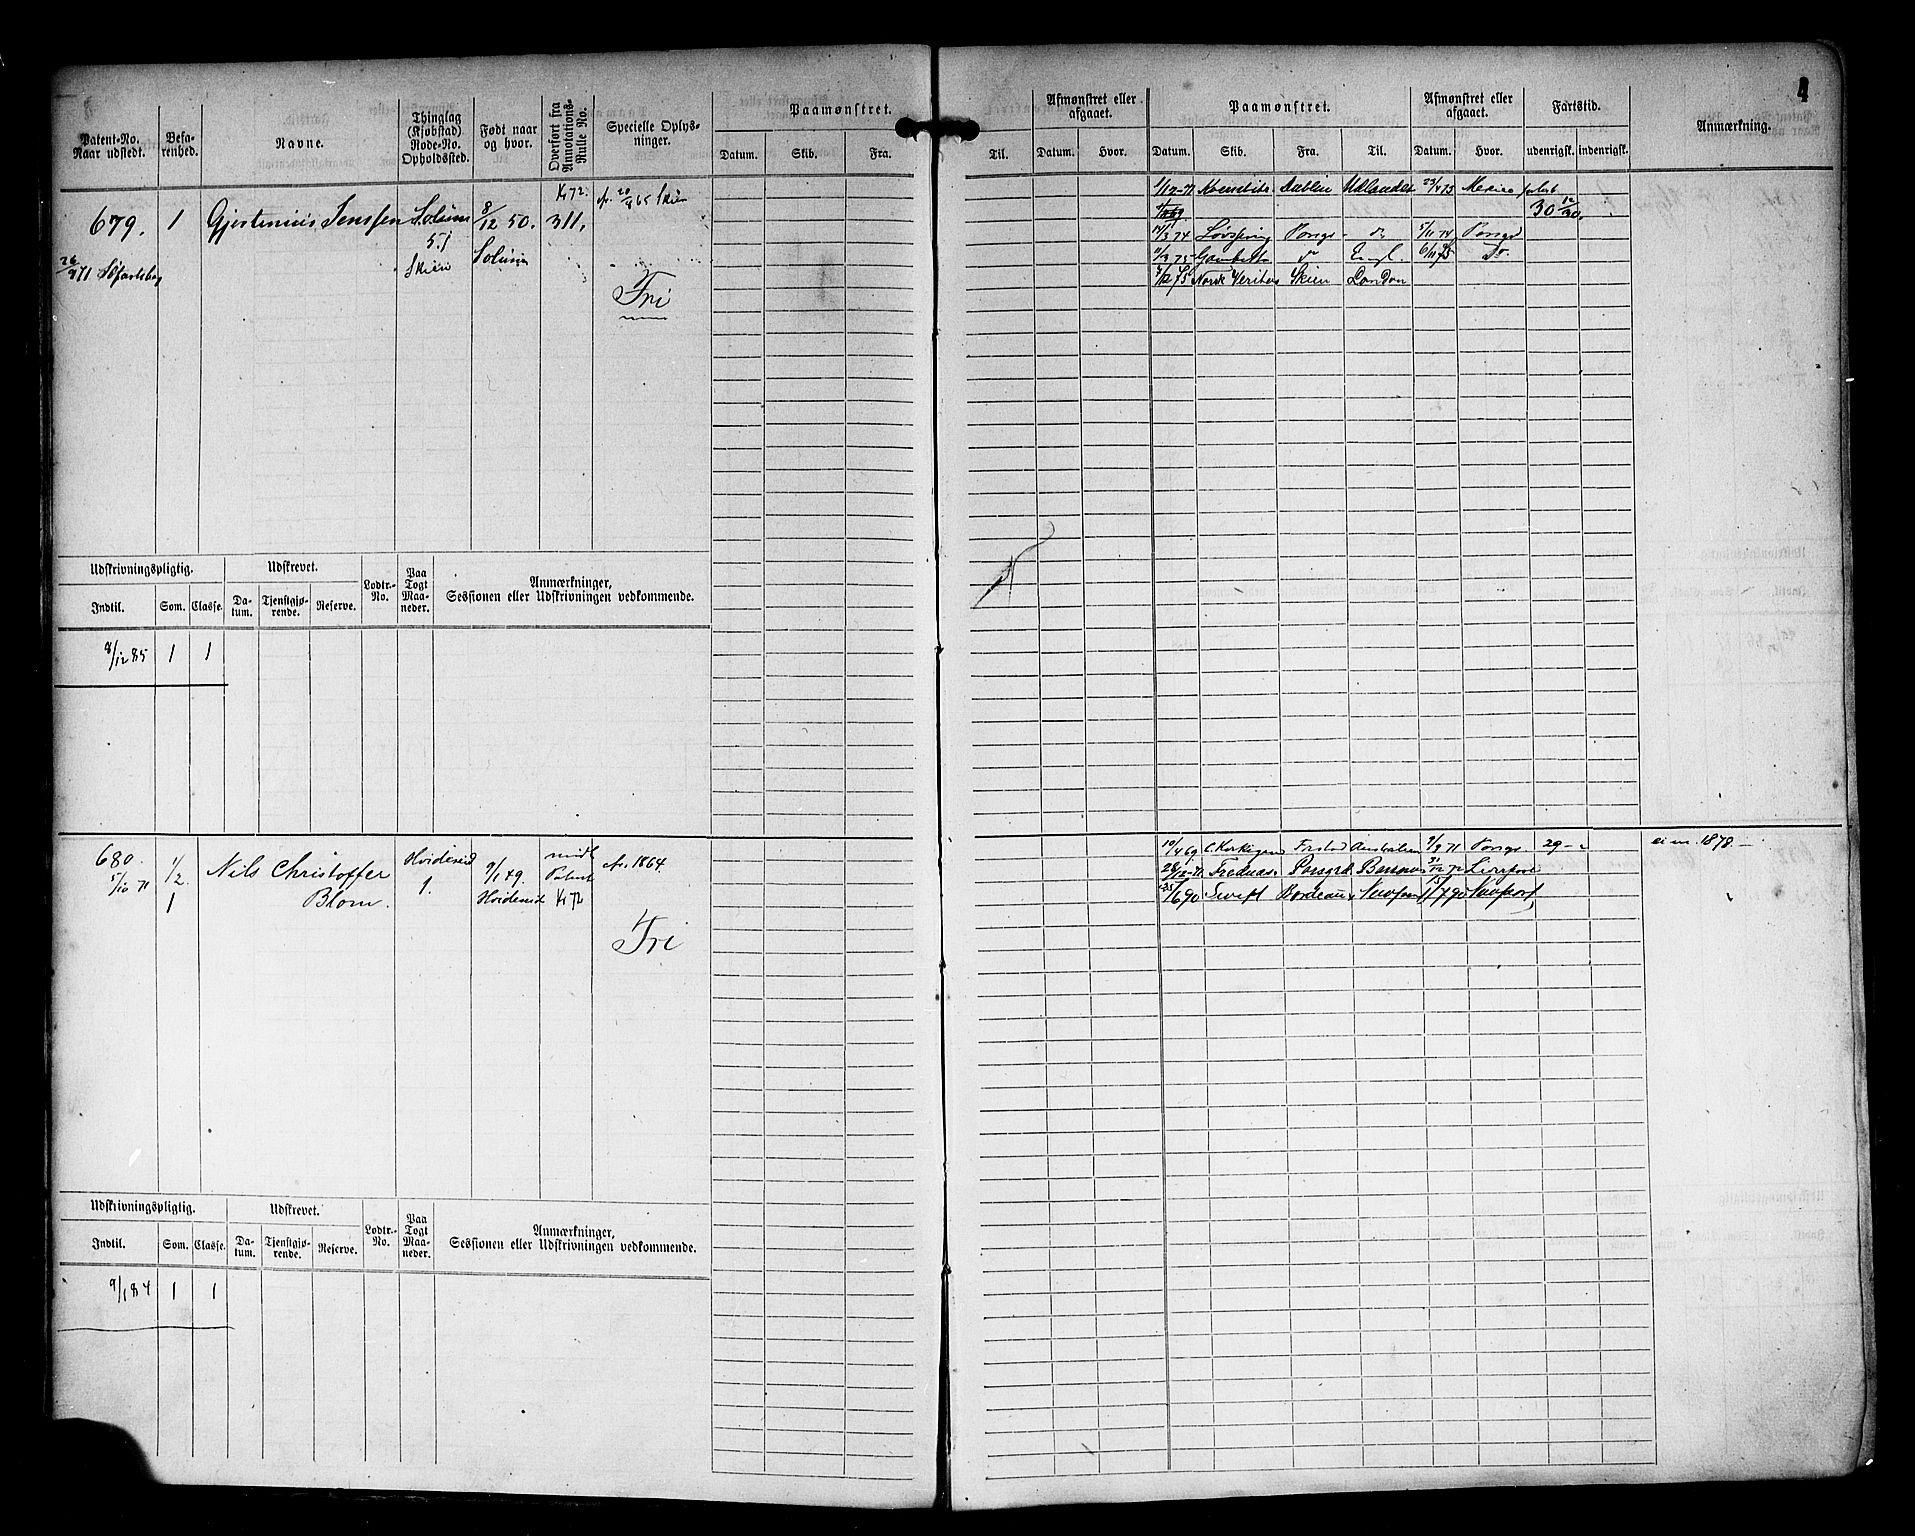 4
Patent-No. Naar udstedt.
Befarenhed.
Navne.
Thinglag (Kjøbstad) Rode-No. Opholdssted.
Født naar og hvor.
Overført fra Annotations-Rulle No.
Specielle Oplysninger.
Paamønstret.
Datum. Skib. Fra. Til.
Afmønstret eller afgaaet.
Datum. Hvor.
Paamønstret.
Datum. Skib. Fra. Til.
Afmønstret eller afgaaet.
Datum. Hvor.
Fartstid.
udenrigsk. indenrigsk.
Anmærkning.
679. 1 Gjerteniuis Jenssen Solum 8/12 50. 311.
Kr 72.
20/4 65 Skien
26/9 71
51 Solum
Skien
Fri
Dublin Udlandet 23/4 73
30 12/30.
14/3 74 Porsgr do 5/11 74 Porsgr
Engl. 6/11 75 Do
7/12 75 Norsk Veritas Skien London
Udskrivningspligtig.
Udskrevet.
Lodtr.-No.
Paa Togt Maaneder.
Anmærkninger, Sessionen eller Udskrivningen vedkommende.
Indtil. Som. Classe. Datum. Tjenstgjørende. Reserve.
8/12 85 1 1
680. 1/2. Nils Christoffer Hvideseid 9/1 49
5/10 71 1 Blom. 1. Hvideseid Kr 72
1864.
Fri
10/4 69 Australien 7/9 71 Porsgr 29 -
Porsgrd 31/12 72 Liverpool
25/6 90 Swift Bordeaux Newport 1/7 90 Newport
ei m. 1878. —
Udskrivningspligtig.
Udskrevet.
Lodtr.-No.
Paa Togt Maaneder.
Anmærkninger, Sessionen eller Udskrivningen vedkommende.
Indtil. Som. Classe. Datum. Tjenstgjørende. Reserve.
9/1 84 1 1